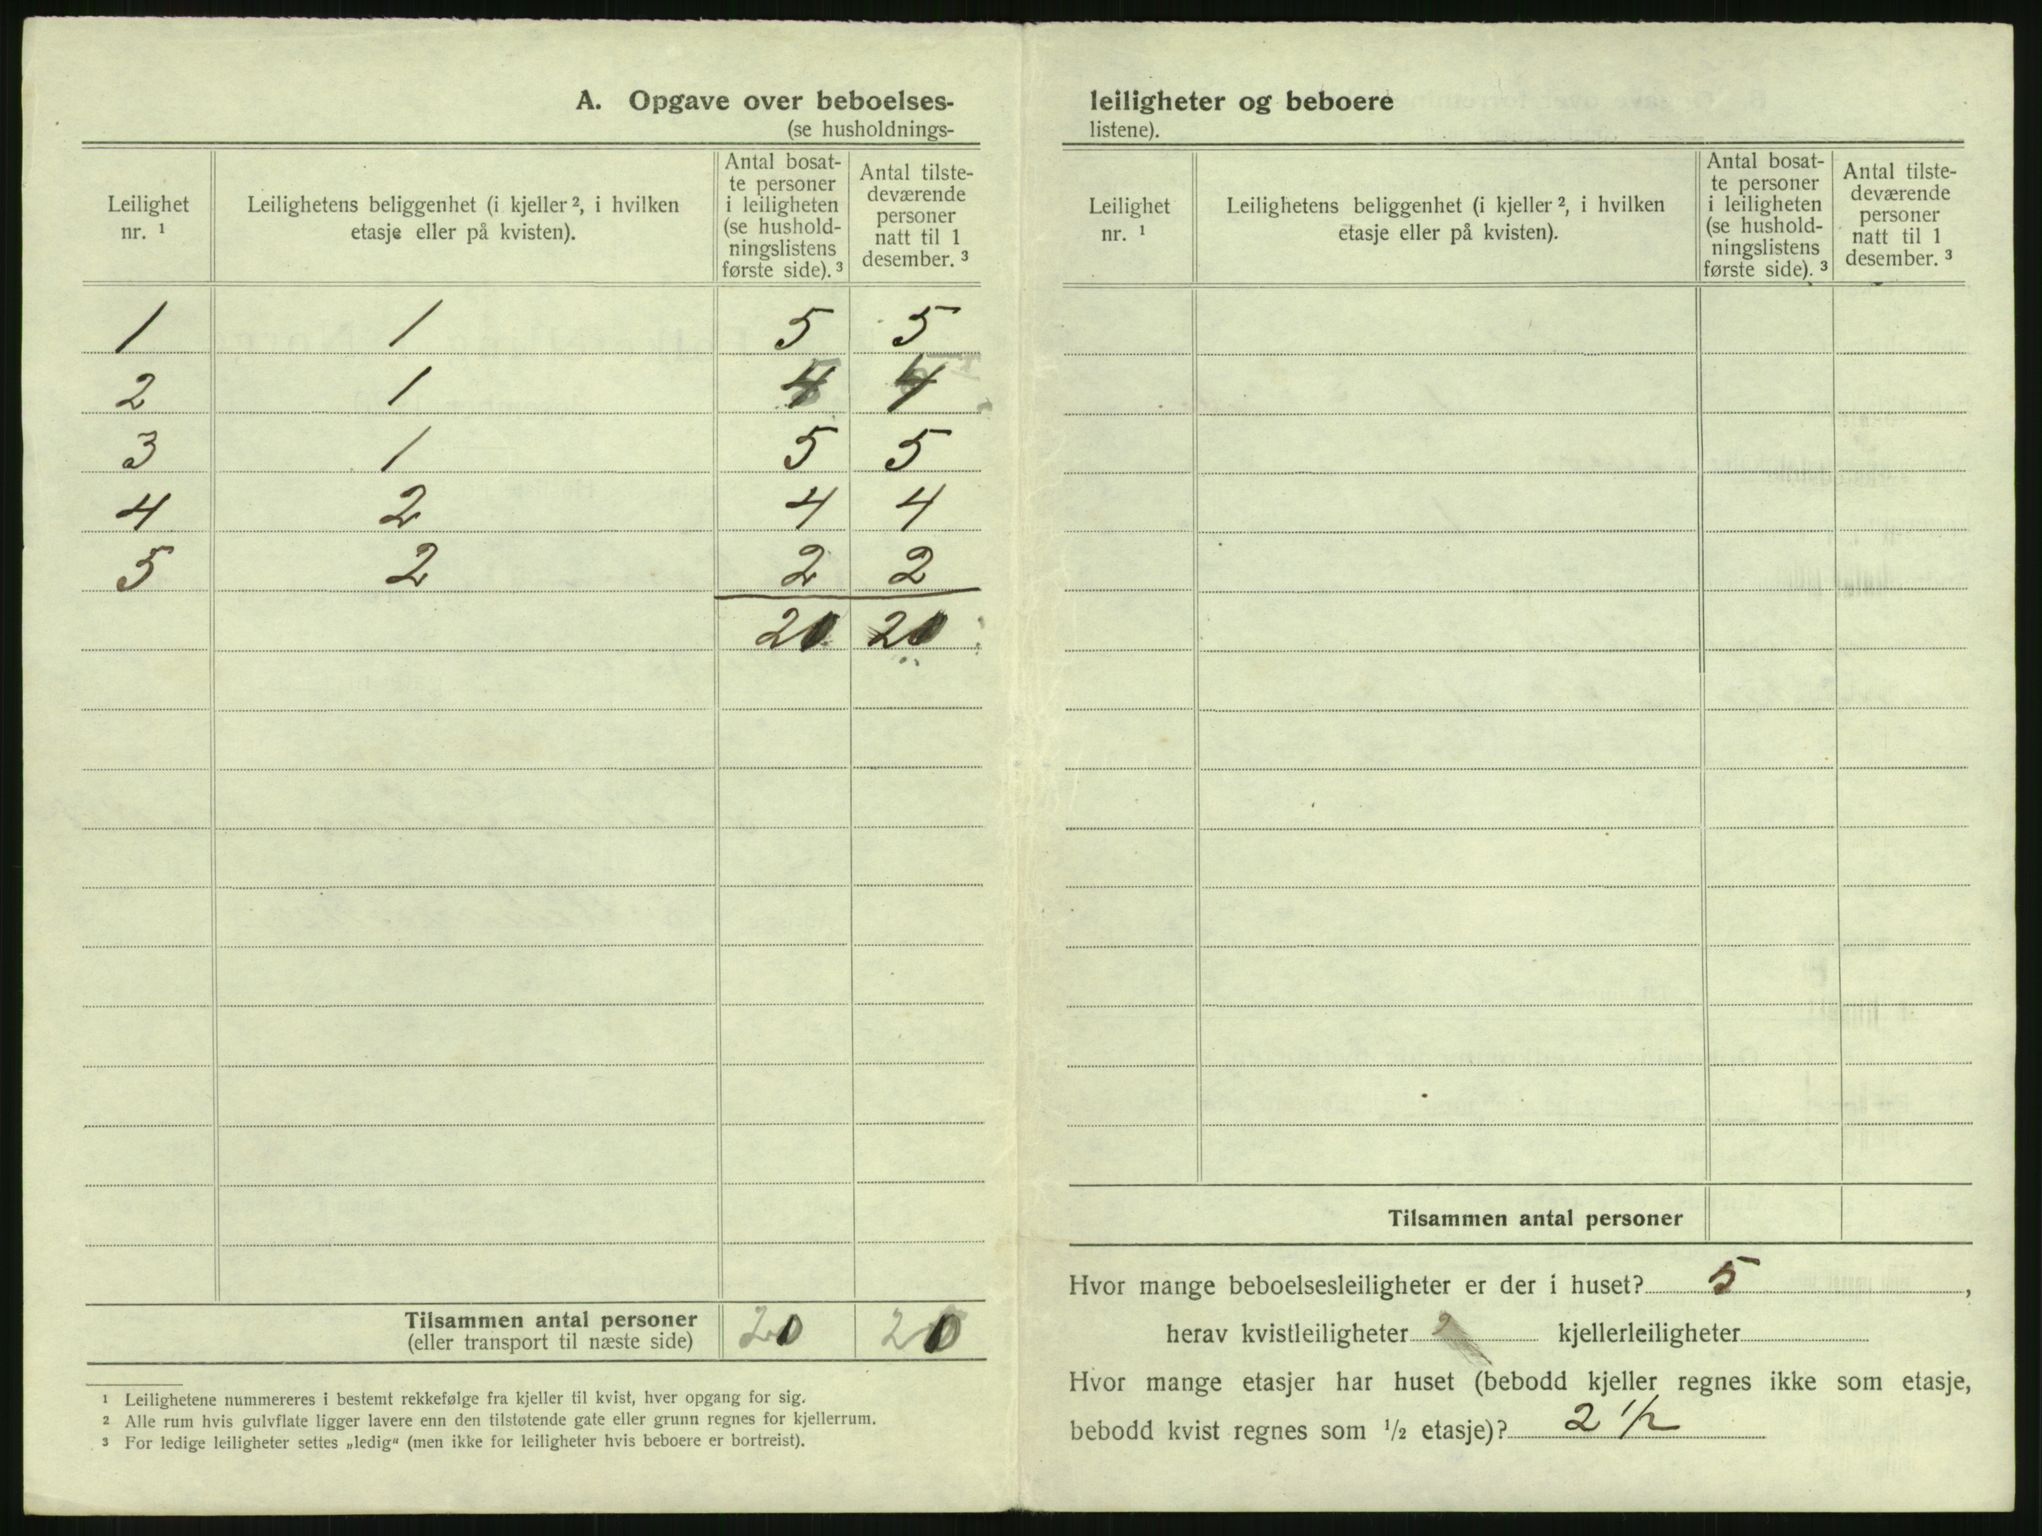 A. Opgave over beboelses-
(se husholdnings-
Leilighet nr. ¹
Leilighetens beliggenhet (i kjeller ², i hvilken etasje eller på kvisten).
Antal bosat-
te personer
i leiligheten
(se hushold-
ningslistens
første side). ³
Antal tilste-
deværende
personer
natt til 1
desember. ³
1 1 5 5
2 1 4 4
3 1 5 5
4 2 4 4
5 2 2 2
20 20
Tilsammen antal personer 20 20
(eller transport til næste side)
¹ Leilighetene nummereres i bestemt rekkefølge fra kjeller til kvist, hver opgang for sig.
² Alle rum hvis gulvflate ligger lavere enn den tilstøtende gate eller grunn regnes for kjellerrum.
³ For ledige leiligheter settes „ledig“ (men ikke for leiligheter hvis beboere er bortreist).
leiligheter og beboere
listene).
Leilighet nr. ¹
Leilighetens beliggenhet (i kjeller ², i hvilken etasje eller på kvisten).
Antal bosat-
te personer
i leiligheten
(se hushold-
ningslistens
første side). ³
Antal tilste-
deværende
personer
natt til 1
desember. ³
Tilsammen antal personer
Hvor mange beboelsesleiligheter er der i huset? 5,
herav kvistleiligheter kjellerleiligheter
Hvor mange etasjer har huset (bebodd kjeller regnes ikke som etasje,
bebodd kvist regnes som ½ etasje)? 2 1/2